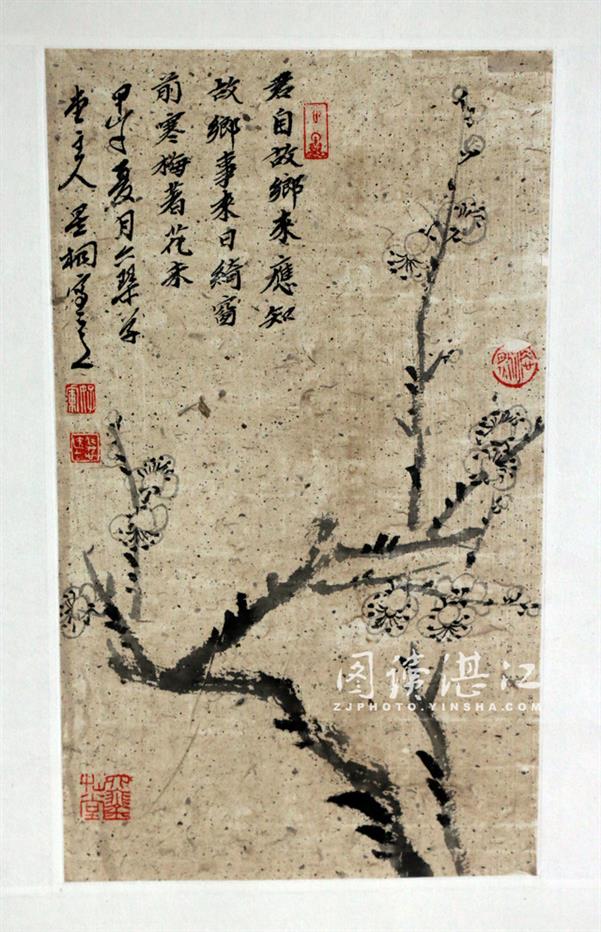 君自故鄉来應知
故鄉事来日綺窗
前寒梅著花未
甲午夏月六琴草
堂主人星桐
图读湛江
ZJPHOTO.YINSHA.COM